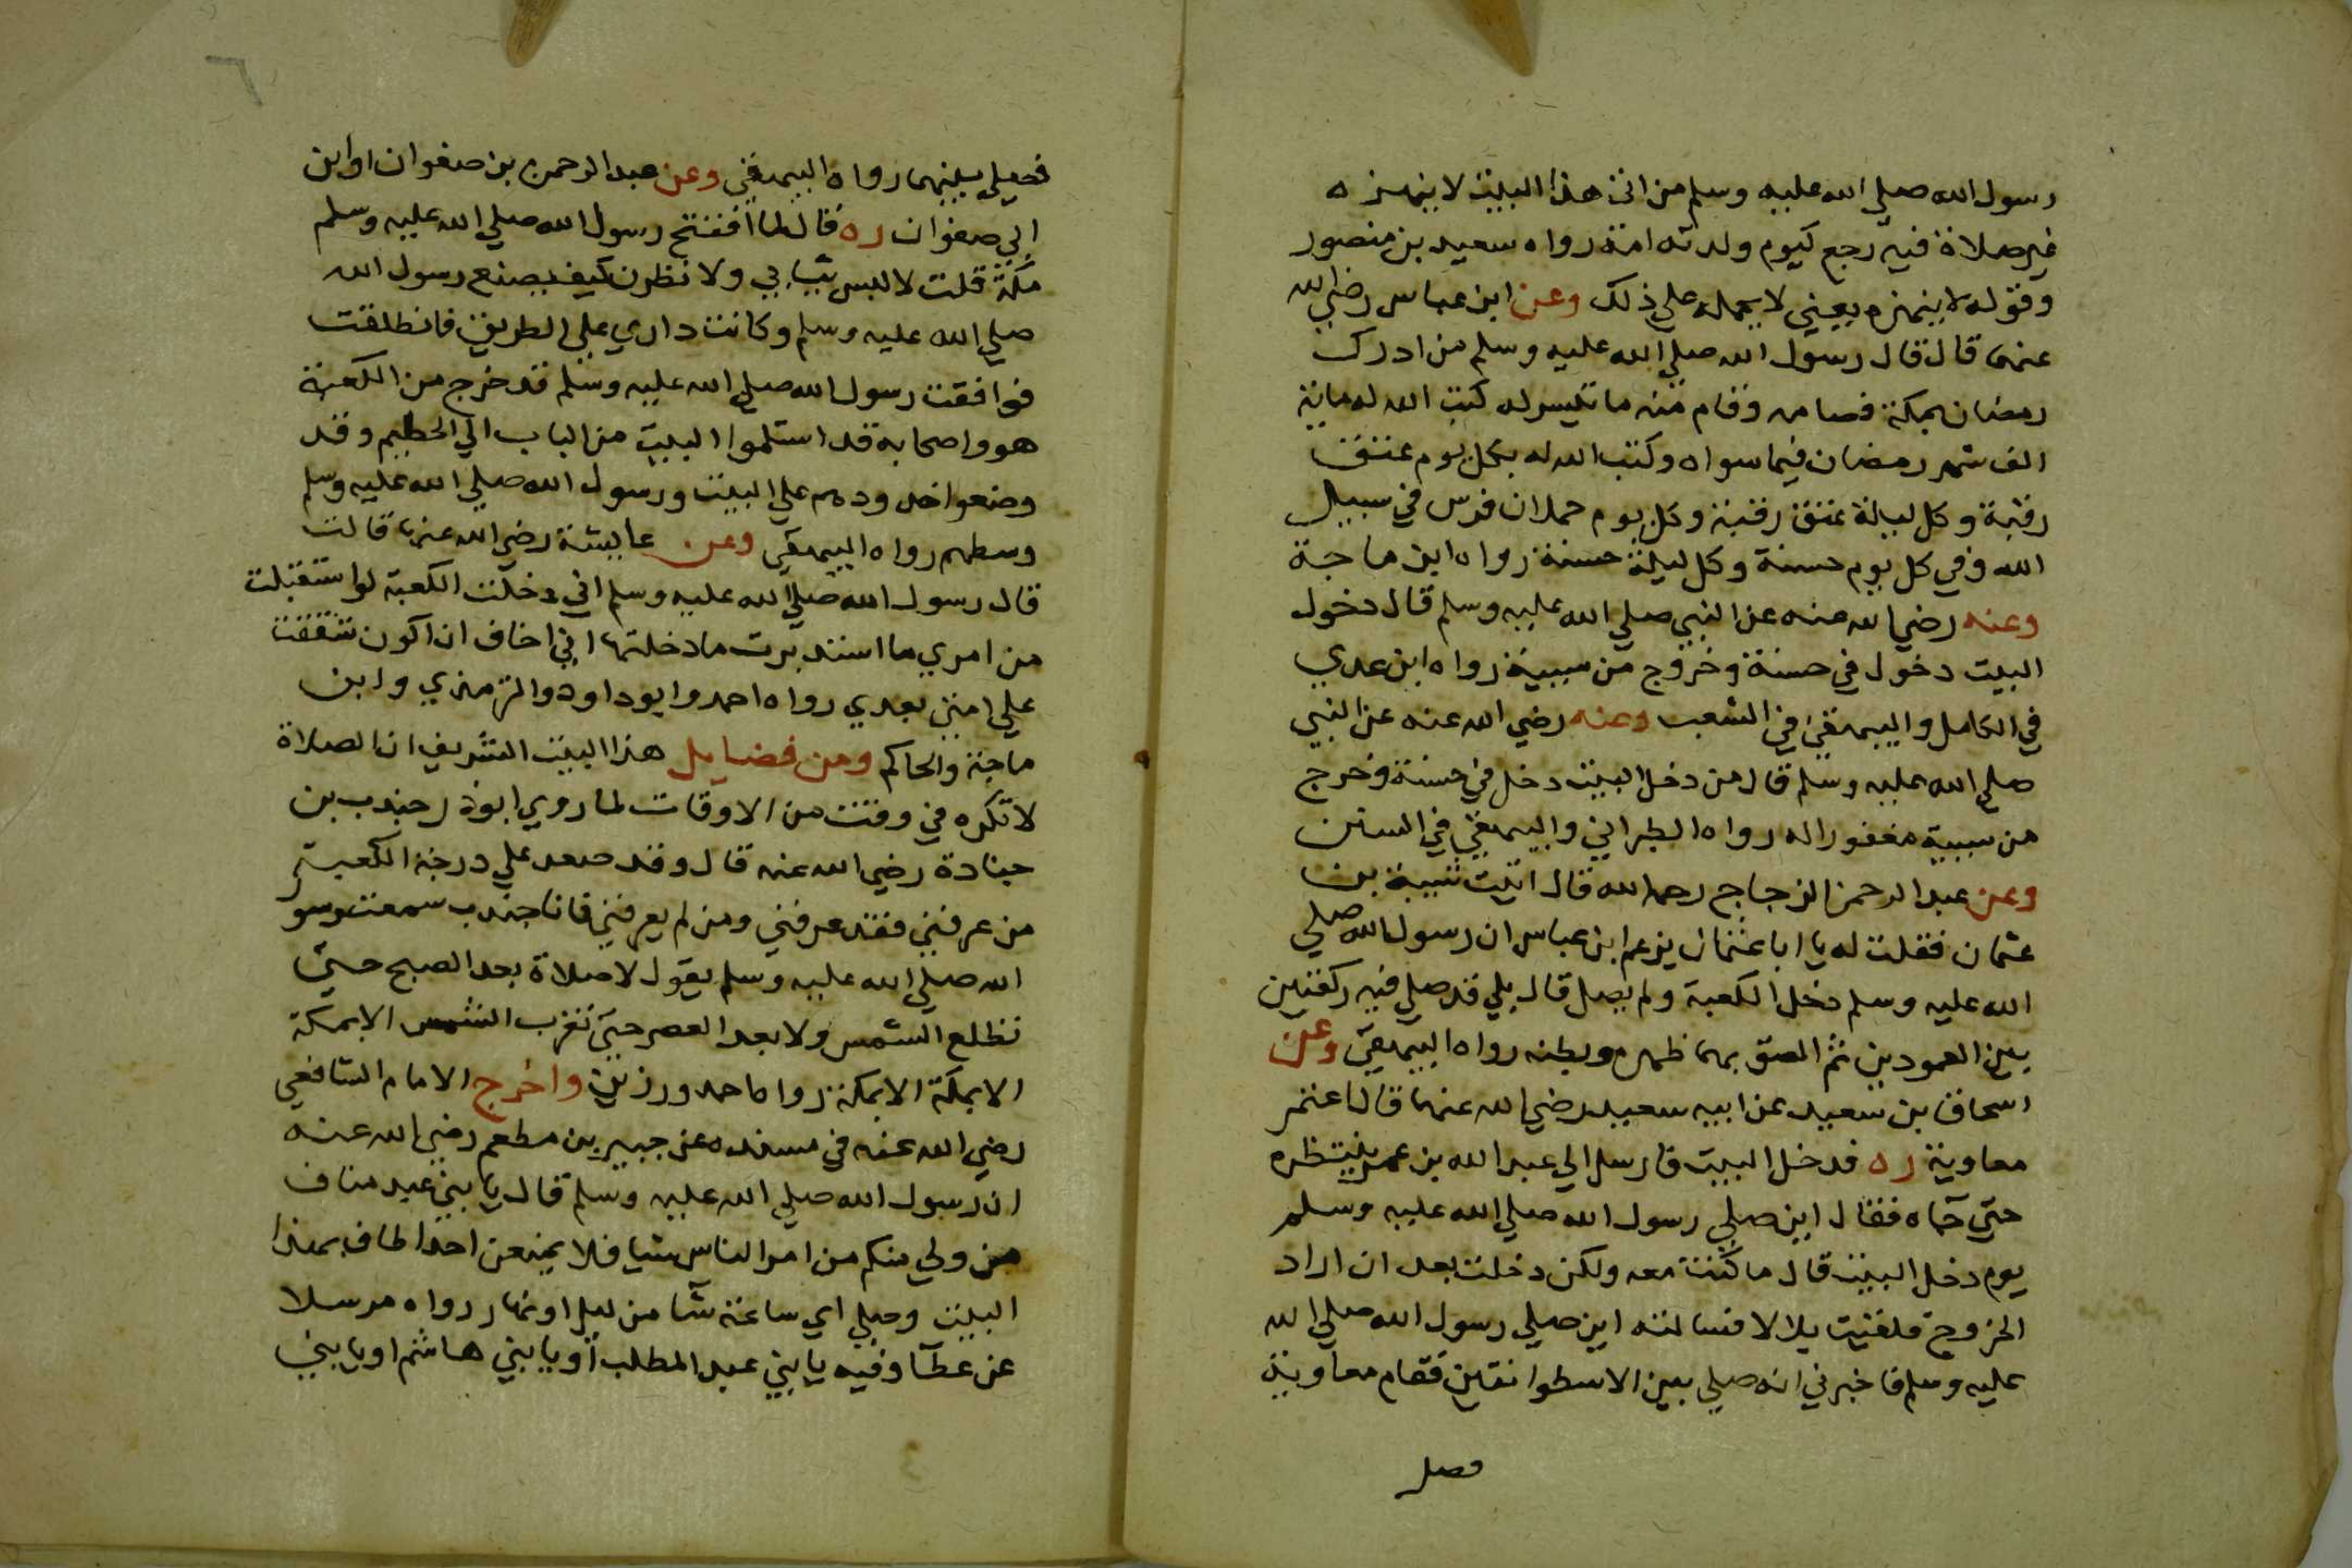 رسول الله صلي الله عليه وسلم من اتى هذا البيت لا ينهزه
غير صلاة فيه رجع كيوم ولدته امه رواه سعيد بن منصور
وقوله لا ينهزه يعني لا يحمله علي ذلك وعن ابن عباس رضي الله
عنهما قال قال رسول الله صلي الله عليه وسلم من ادرك
رمضان بمكة فصامه وقام منه ما تيسر له كتب الله له ماية
الف شهر رمضان فيما سواه وكتب الله له بكل يوم عتق
رقبة وكل ليلة عتق رقبة وكل يوم حملان فرس في سبيل
الله وفي كل يوم حسنة وكل ليلة حسنة رواه ابن ماجة
وعنه رضي الله عنه عن النبي صلي الله عليه وسلم قال دخول
البيت دخول في حسنة وخروج من سيية رواه ابن عدي
في الكامل والبيهقي في الشعب وعنه رضي الله عنه عن النبي
صلي الله عليه وسلم قال من دخل البيت دخل في حسنة وخرج
من سيية مغفورا له رواه الطبراني والبيهقي في السنن
وعن عبد الرحمن الزجاج رحمه الله قال اتيت شيبة بن
عثمان فقلت له يا ابا عثمان يزعم ابن عباس ان رسول الله صلي
الله عليه وسلم دخل الكعبة ولم يصل قال بلي قد صلي فيه ركعتين
بين العمودين ثم الصق بهما ظهره وبطنه رواه البيهقي وعن
اسحاق بن سعيد عن ابيه سعيد رضي الله عنهما قال اعتمر
معاوية ره فدخل البيت فارسل الي عبد الله بن عمر ينتظره
حتي جاه فقال اين صلي رسول الله صلي الله عليه وسلم
يوم دخل البيت قال ما كنت معه ولكن دخلت بعد ان اراد
الخروج فلقيت بلالا فسالته اين صلي رسول الله صلي الله
عليه وسلم فاخبرني انه صلي بين الاسطوانتين فقام معاوية
فصلي
٦
فصلي بينهما رواه البيهقي وعن عبد الرحمن بن صفوان او ابن
ابي صفوان ره قال لما افتتح رسول الله صلي الله عليه وسلم
مكة قلت لا لبس ثيابي ولا نظرن كيف يصنع رسول الله
صلي الله عليه وسلم وكانت داري علي الطريق فانطلقت
فوافقت رسول الله صلي الله عليه وسلم قد خرج من الكعبة
هو واصحابه قد استلموا البيت من الباب الي الحطيم وقد
وضعوا خدودهم علي البيت ورسول الله صلي الله عليه وسلم
وسطهم رواه البيهقي وعن عايشة رضي الله عنها قالت
قال رسول الله صلي الله عليه وسلم اني دخلت الكعبة لو استقبلت
من امري ما استدبرت ما دخلتها اني اخاف ان اكون شققت
علي امتي بعدي رواه احمد وابو داود والترمذي وابن
ماجة والحاكم ومن فضايل هذا البيت الشريف ان الصلاة
لا تكره في وقت من الاوقات لما روي ابو ذر جندب بن
جنادة رضي الله عنه قال وقد صعد علي درجة الكعبة
من عرفني فقد عرفني ومن لم يعرفني فانا جندب سمعت رسو
الله صلي الله عليه وسلم يقول لا صلاة بعد الصبح حتي
تطلع الشمس ولا بعد العصر حتي تغرب الشمس الا بمكة
الا بمكة الا بمكة رواه احمد ورزين واخرج الامام الشافعي
رضي الله عنه في مسنده عن جبير بن مطعم رضي الله عنه
ان رسول الله صلي الله عليه وسلم قال يا بني عبد مناف
من ولي منكم من امر الناس شيا فلا يمنعن احدا طاف بهذا
البيت وصلي اي ساعة شا من ليل او نهار رواه مرسلا
عن عطا وفيه يا بني عبد المطلب او يا بني هاشم او يا بني